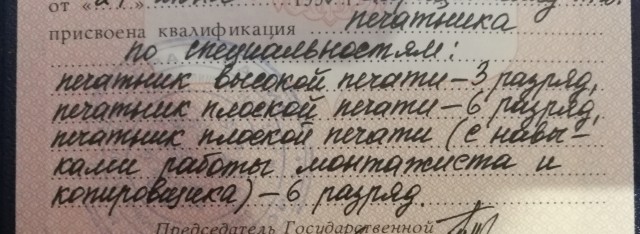 от «
присвоена квалификация печатника
по специальностям:
печатник высокой печати – 3 разряд,
печатник плоской печати – 6 разряд,
печатник плоской печати (с навы-
ками работы монтажиста и
копировщика) – 6 разряд.
Председатель Государственной